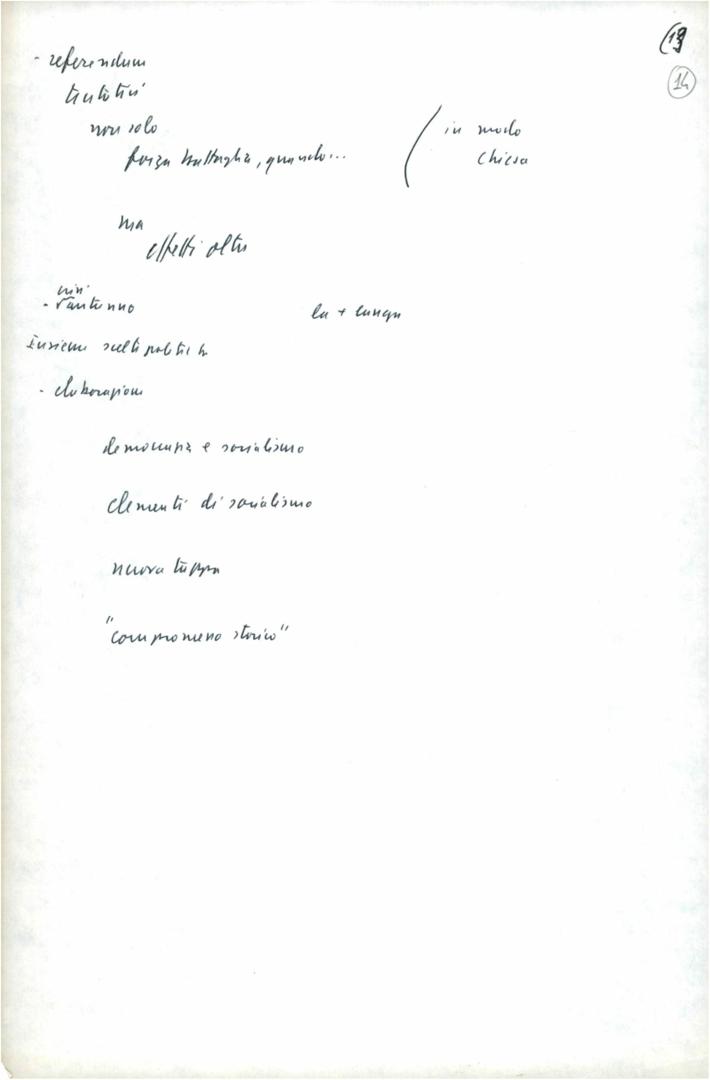 (13
14
- referendum
tentativi
non solo
forza battaglia, quando...
in modo
Chiesa
ma
effetti oltre
crisi
- Vantenno
la + lunga
Insieme scelte politich
- elaborazione
democrazia e socialismo
elementi di socialismo
nuova tappa
"compromesso storico"